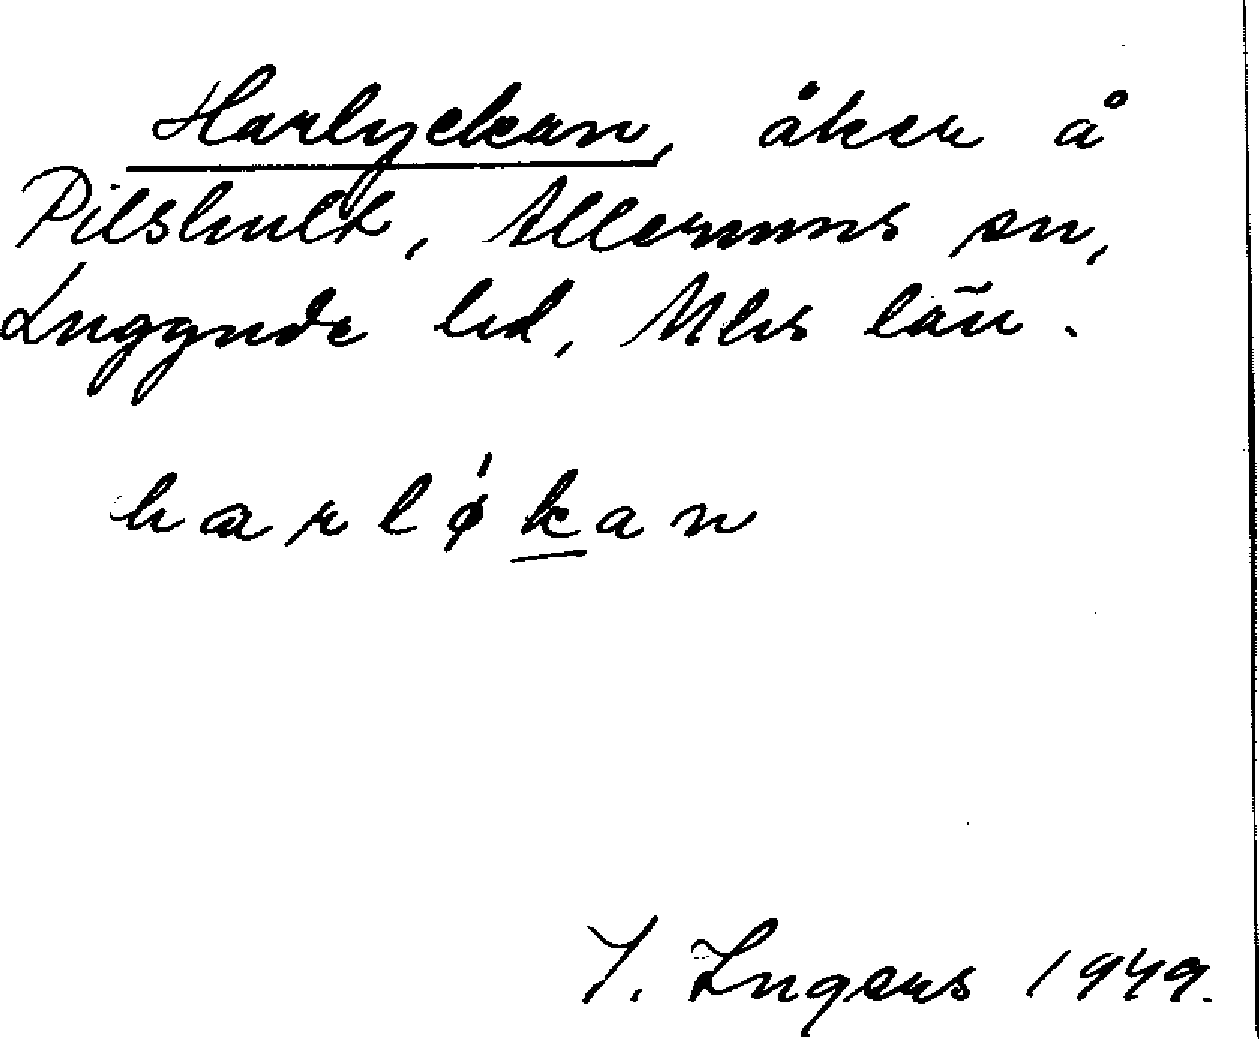 Harlyckan, åker å
Pilshult, Allerums sn,
Luggude hd, Mhs län.
harløkan
I. Ingers 1949.